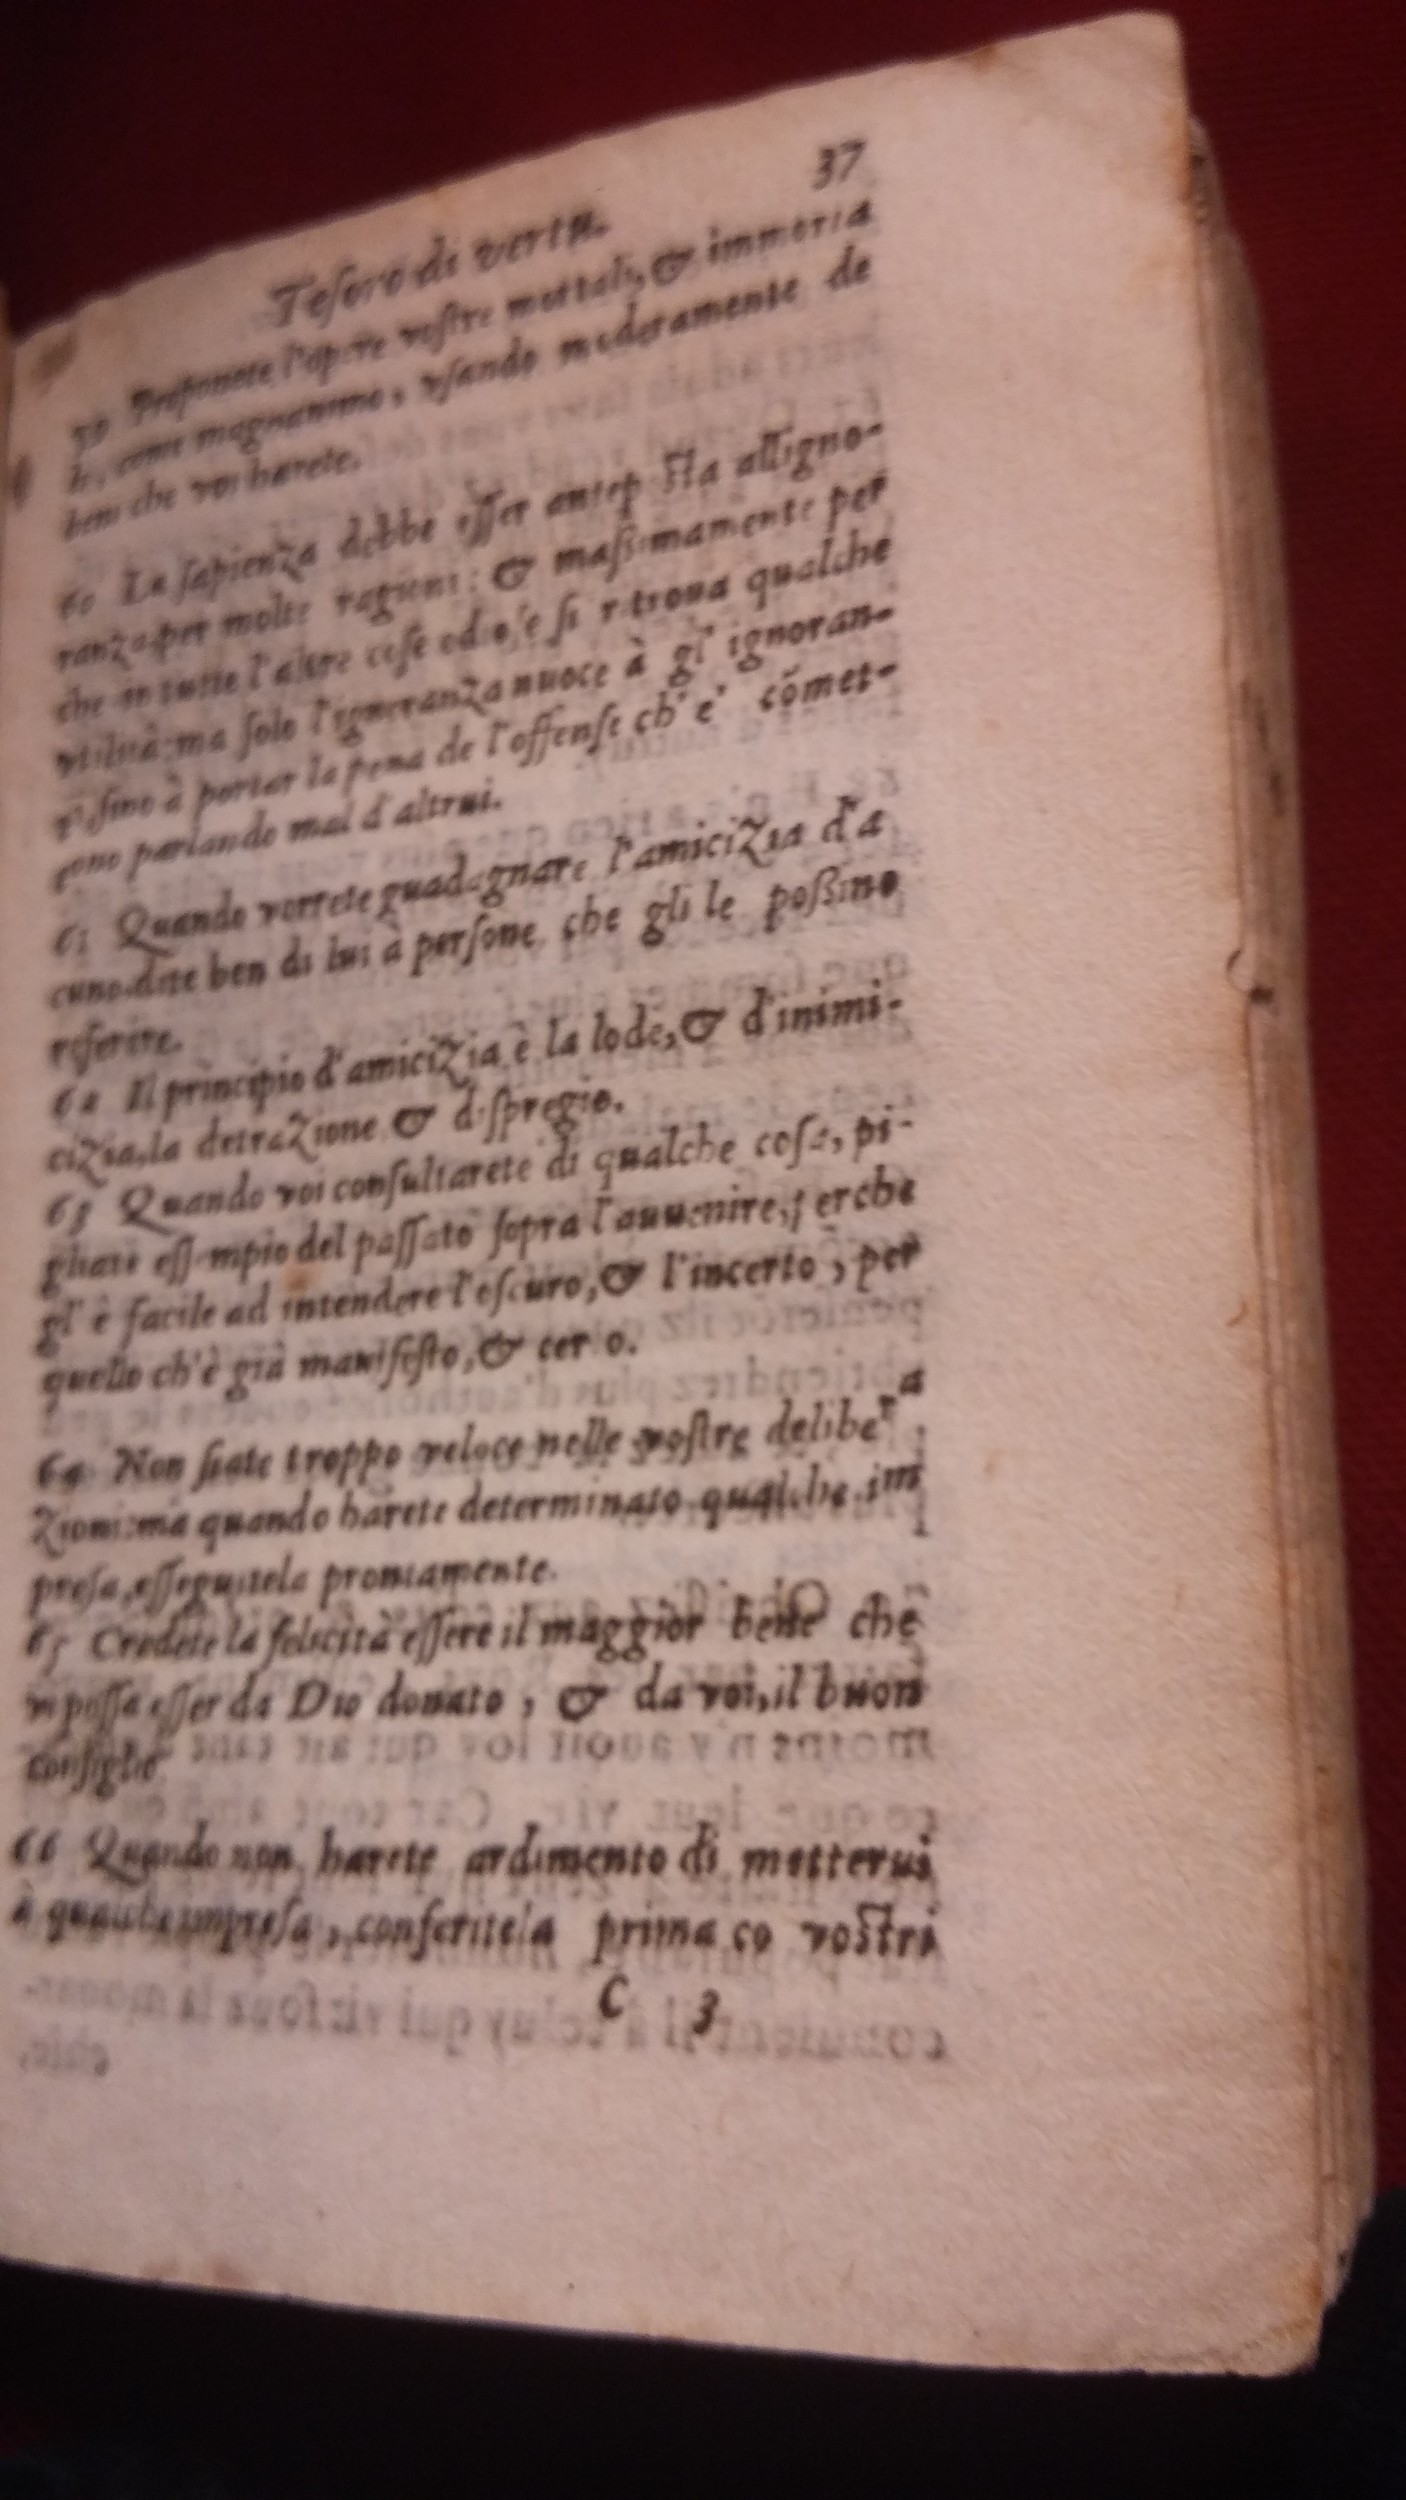 37
Tesoro di vertu.
59 Proponete l'opere vostre mortali, & immorta
li, come magnanimo, vsando moderamente de
beni che voi harete.
60 La sapienza debbe esser antep sta all'igno-
ranza per molte ragioni: & massimamente per
che in tutte l'altre cose odiose si ritroua qualche
vtilità: ma solo l'ignoranza nuoce à gl' ignoran-
ti, sino à portar la pena de l'offense ch' e' cõmet-
tono parlando mal d'altrui.
61 Quando vorrete guadagnare l'amicizia d'a
cuno, dite ben di lui à persone, che gli le possino
riferire.
62 Il principio d'amicizia è la lode, & d'inimi-
cizia, la detrazione & dispregio.
63 Quando voi consultarete di qualche cosa, pi-
gliate essempio del passato sopra l'auuenire, perche
gl' è facile ad intendere l'oscuro, & l'incerto, per
quello ch'è già manifesto, & cer o.
64 Non siate troppo veloce nelle vostre delibera
zioni: ma quando harete determinato qualche im
presa, esseguitela prontamente.
65 Credete la felicità essere il maggior bene che
vi possa esser da Dio donato, & da voi, il buon
consiglio
66 Quando non harete ardimento di metterui
à qualche impresa, conferitela prima co vostri
C 3